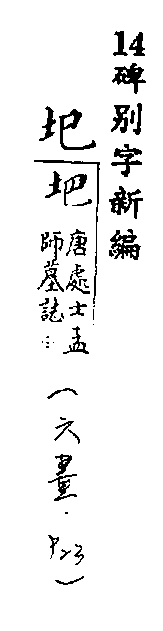 14碑別字新編
圯
圯
唐處士孟
師墓誌…
(六畫.P23)